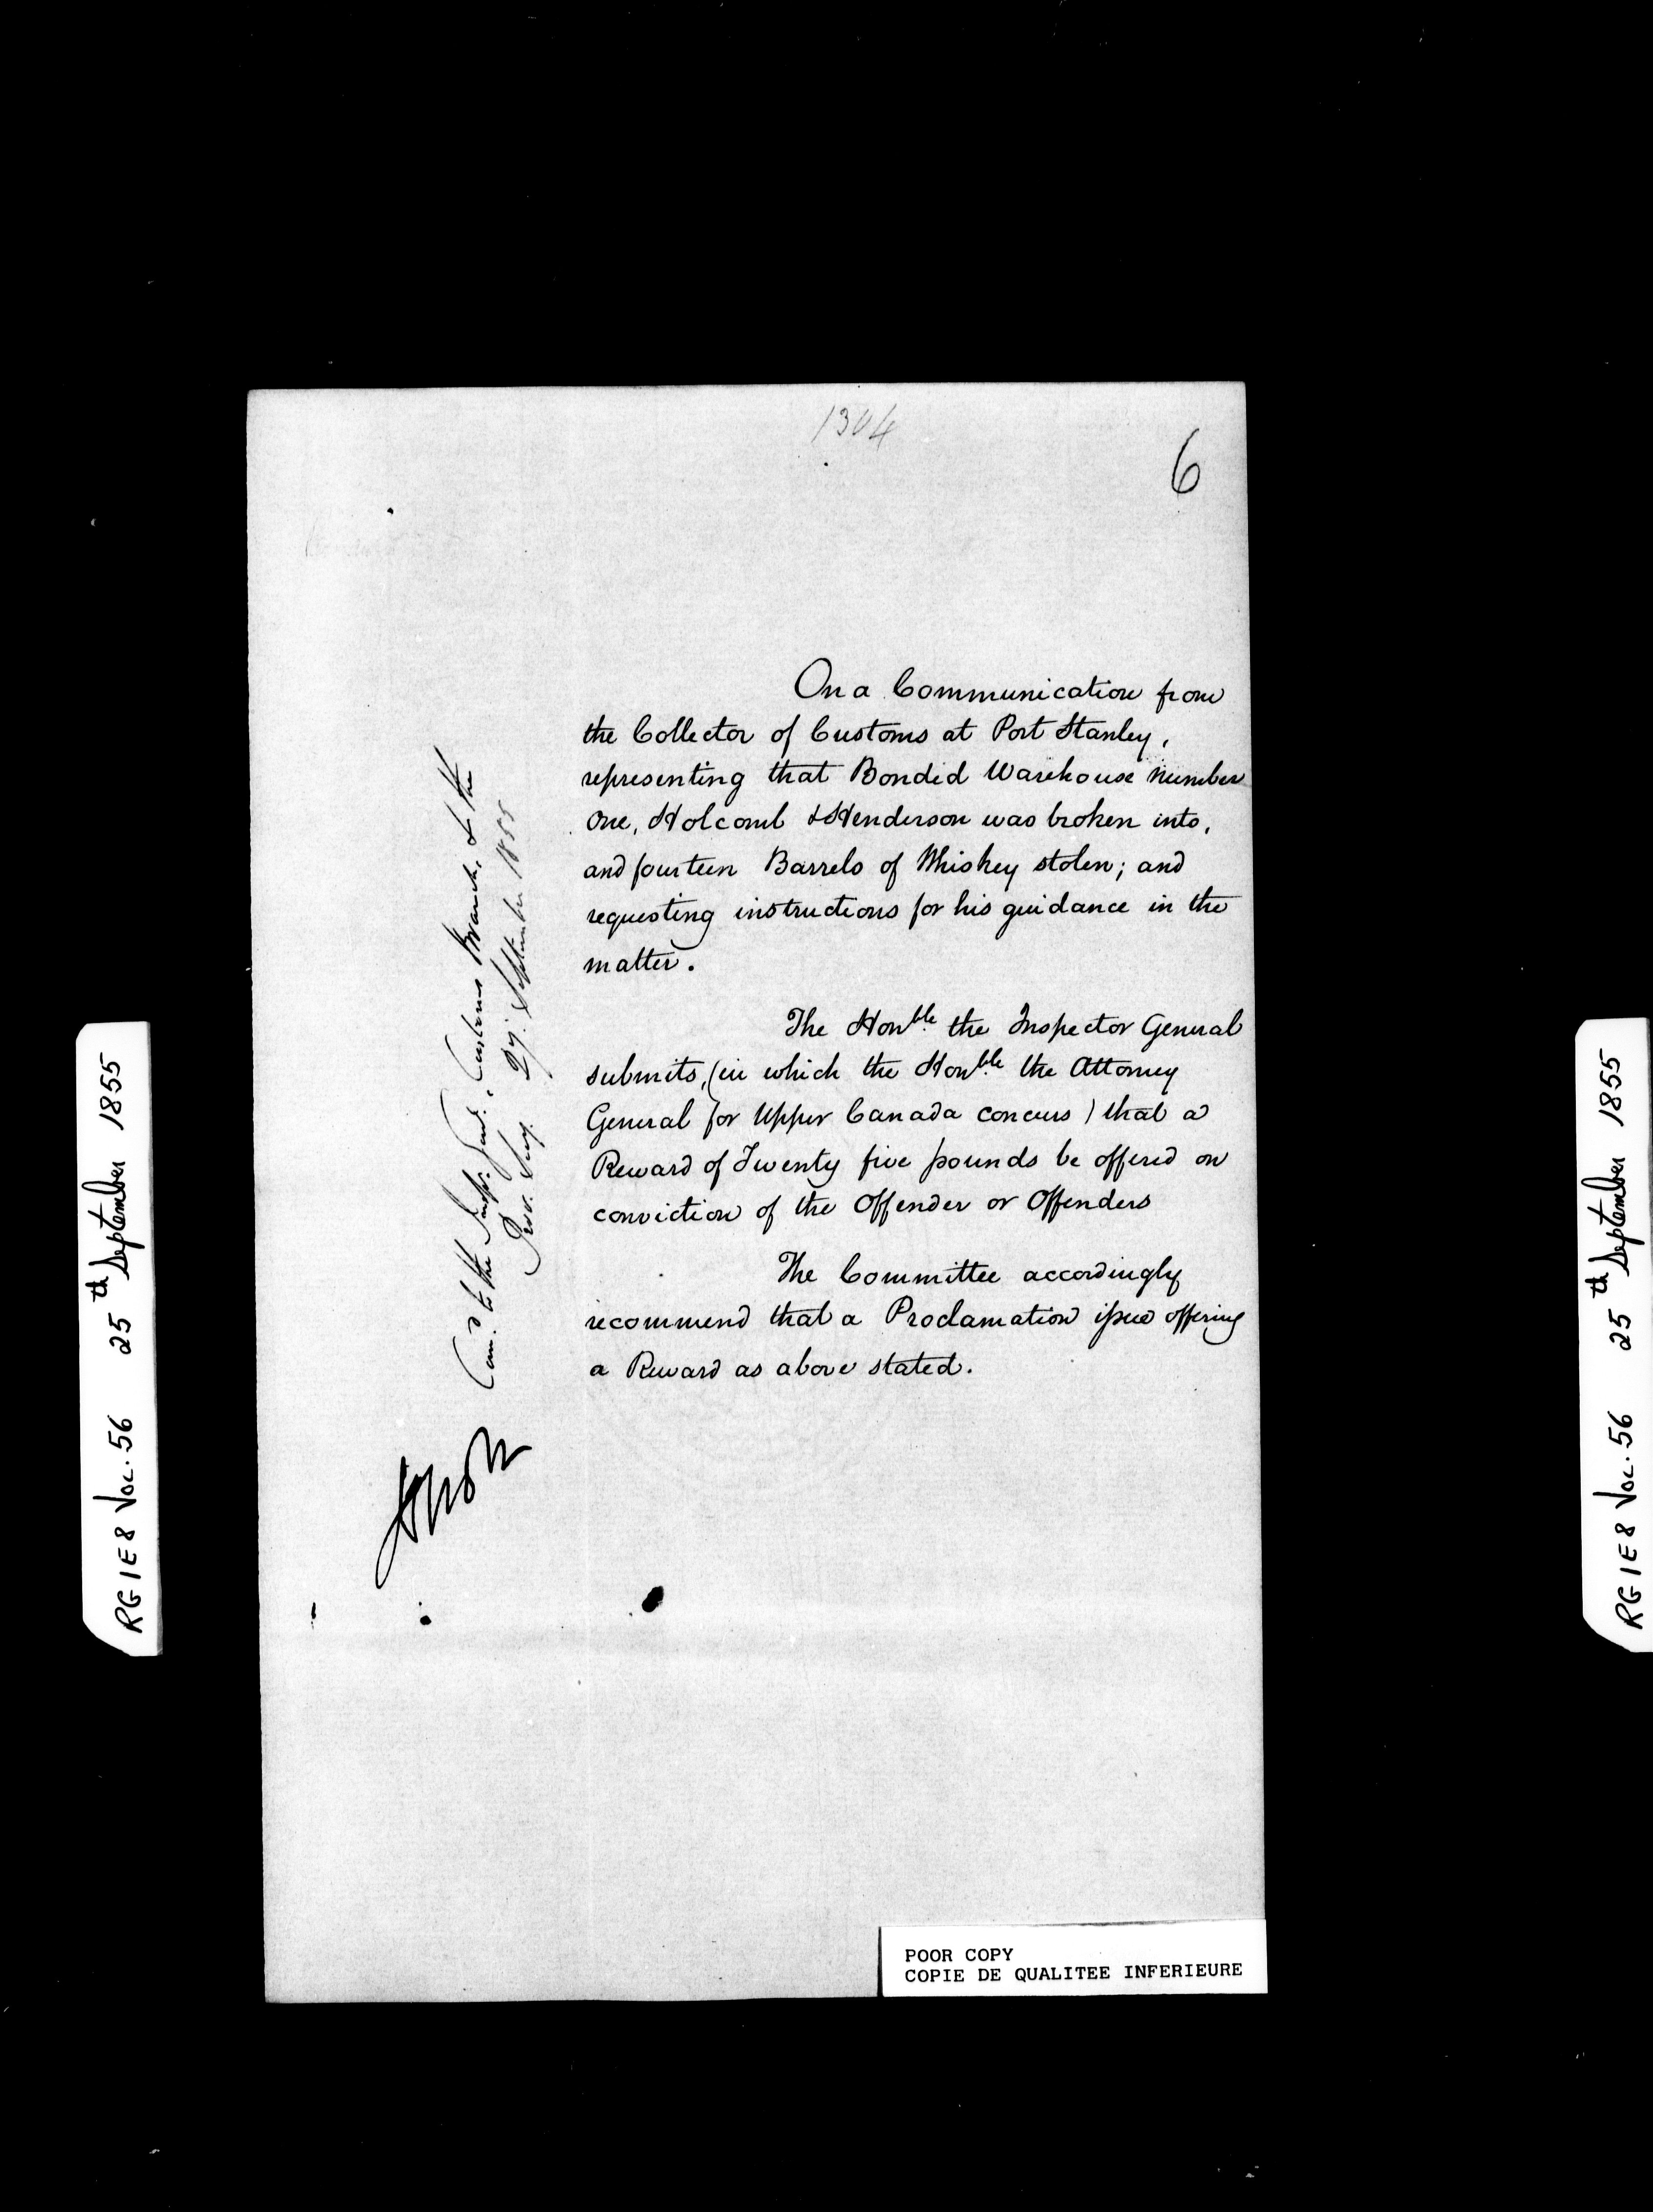 1304
6
On a Communication from
the Collector of Customs at Port Stanley,
representing that Bonded Warehouse number
one, Holcomb & Henderson was broken into,
and fourteen Barrels of Whiskey stolen; and
requesting instructions for his guidance in the
matter.
The Honble the Inspector General
submits, (in which the Honble the Attorney
General for Upper Canada concurs) that a
Reward of Twenty five pounds be offered on
conviction of the Offender or Offenders
The Committee accordingly
recommend that a Proclamation issue offering
a Reward as above stated.
Com.d to the Insp. Genl., Customs Branch, & the
Prov. Secy. 27. September 1855
RG 1 E 8 Vol. 56 25th September 1855
RG 1 E 8 Vol. 56 25th September 1855
POOR COPY
COPIE DE QUALITEE INFERIEURE